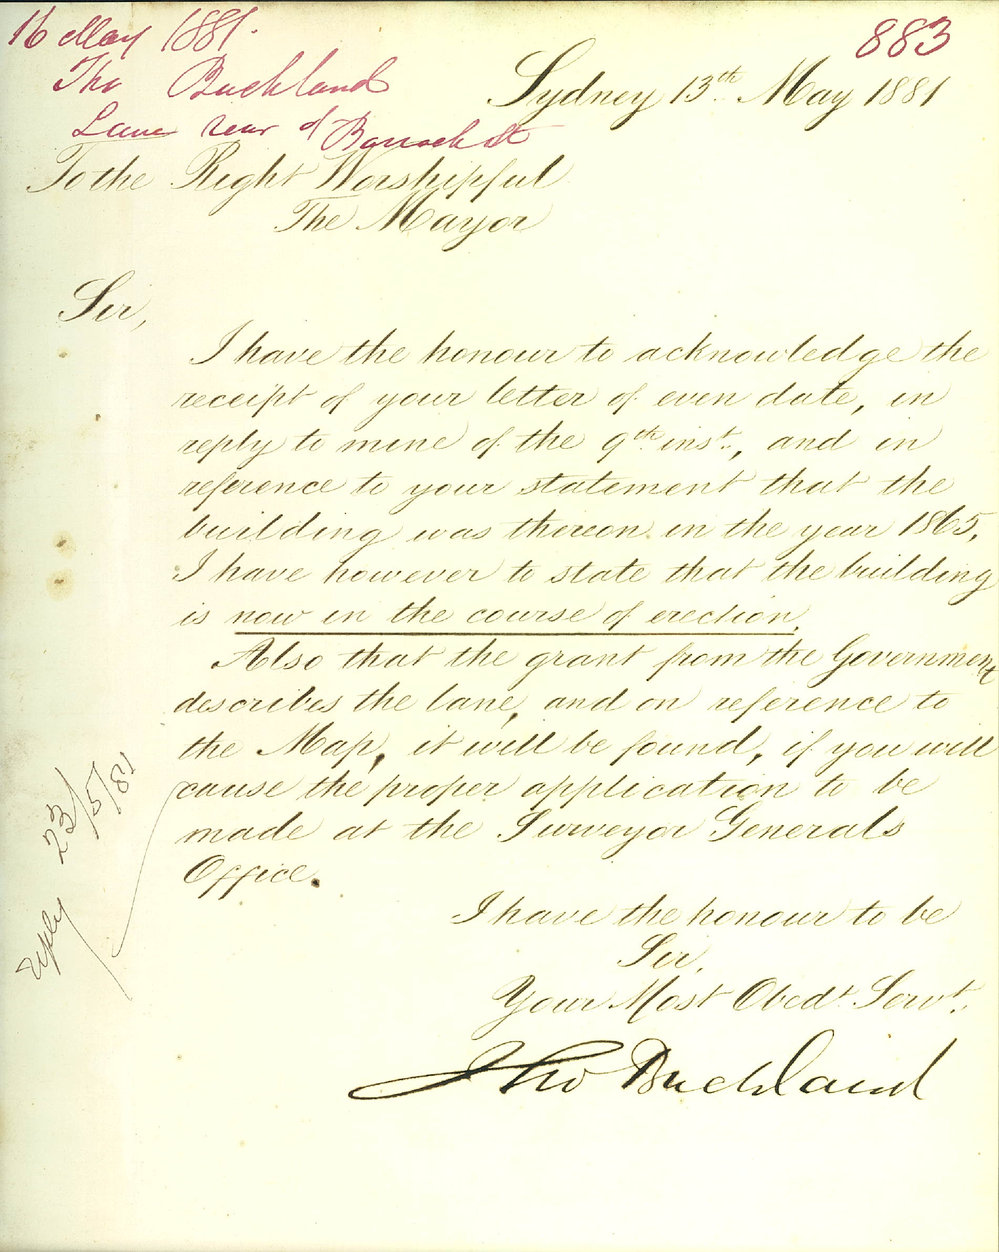 16 May 1881.
883
Tho Buckland
Lane rear of Barrack St
Sydney 13th May 1881
To the Right Worshipful
The Mayor
Sir,
I have the honour to acknowledge the
receipt of your letter of even date, in
reply to mine of the 9th inst., and in
reference to your statement that the
building was thereon in the year 1865,
I have however to state that the building
is now in the course of erection,
Also that the grant from the Government
describes the lane, and on reference to
the Map, it will be found, if you will
cause the proper application to be
made at the Surveyor Generals
Office.
I have the honour to be
Sir,
Your Most Obedt. Servt.
Tho Buckland
Reply 23/5/81